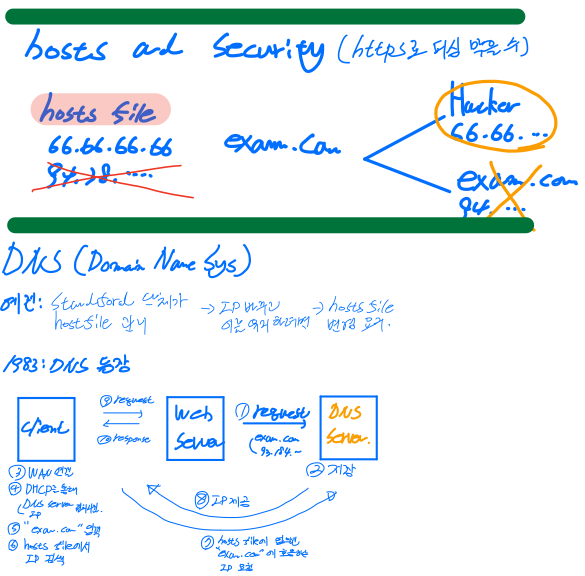 hosts and security (https로 되심 막을 수)
hosts file
66.66.66.66
94.38.....
exam.com
Hacker
66.66....
exam.com
94....
DNS (Domain Name Sys)
예전: Standford 단체가
hostfile 관리
→ IP 바뀌고
→ hosts file
변경 요구.
1983: DNS 등장
client
⑨ request
⑩ response
Web
Server
① request
exam.com
93.184.~
DNS
Server.
② 저장
③ WAN 연결
④ DHCP를 통해
DNS server
IP
⑤ "exam.com" 입력
⑥ hosts file에서
IP 검색
⑧ IP 제공
⑦ hosts file에 없으면
"exam.com"에 해당하는
IP 요청